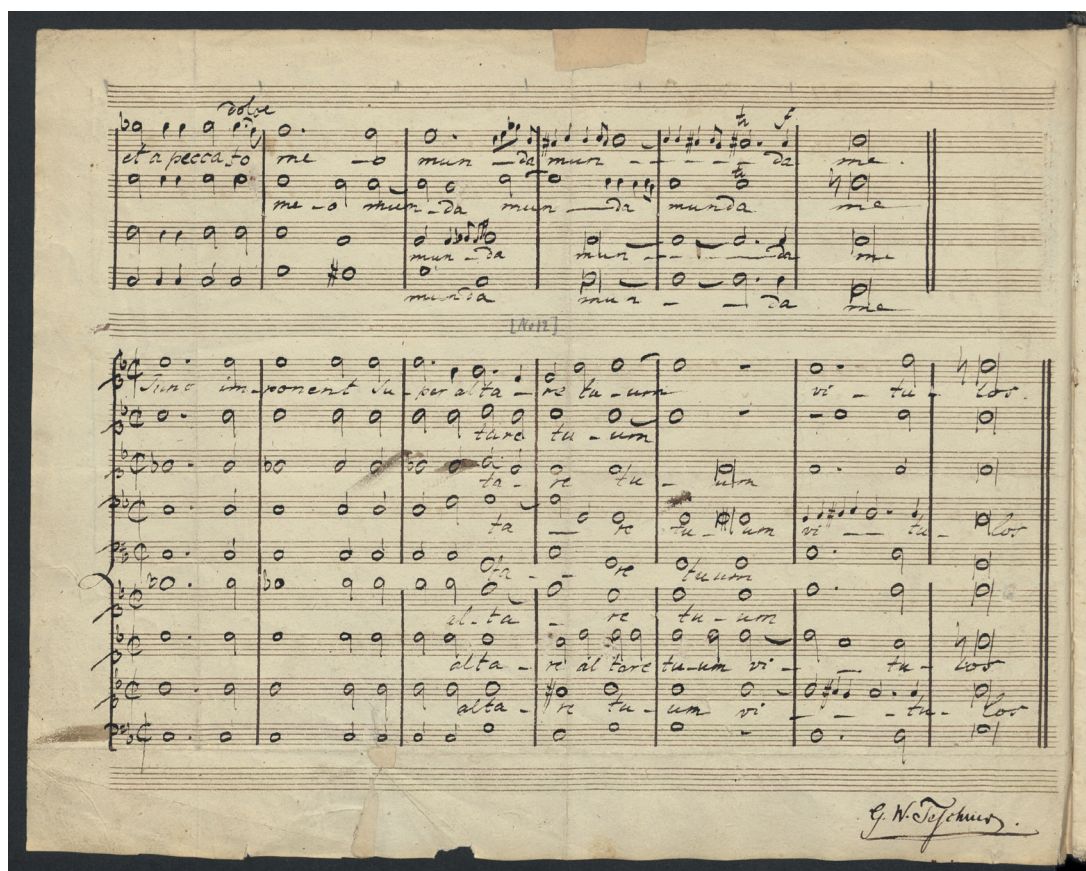 dolce
tr f
et a peccato me - o mun - da mun - - - - - da me.
tr
me - o mun - da mun - da munda me
mun - da mun - - - da me
munda mun - - da me
[No 12]
Tunc im - ponent su - per alta - re tu - um vi - tu - los.
tare tu - um
ta - re tu - um
ta - re tu - um vi - - tu - los
ta - - re tuum
al - ta - re tu - um
alta - re altare tu - um vi - - tu - los
alta - re tu - um vi - - - tu - los
G. W. Teschner.